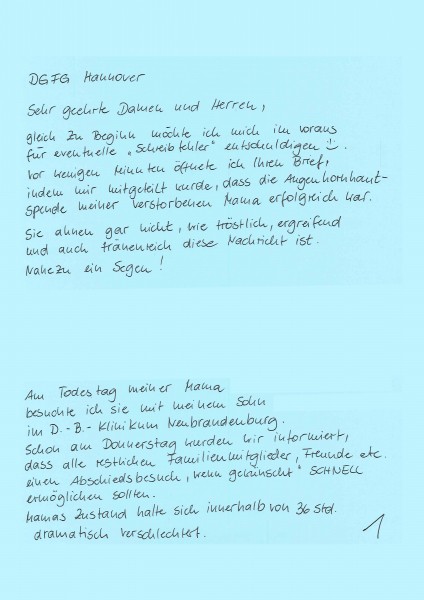 DGFG Hannover
Sehr geehrte Damen und Herren,
gleich zu Beginn möchte ich mich im voraus
für eventuelle „Schreibfehler" entschuldigen ☺.
Vor wenigen Minuten öffnete ich Ihren Brief,
indem mir mitgeteilt wurde, dass die Augenhornhaut-
spende meiner verstorbenen Mama erfolgreich war.
Sie ahnen gar nicht, wie tröstlich, ergreifend
und auch tränenreich diese Nachricht ist.
Nahezu ein Segen!
Am Todestag meiner Mama
besuchte ich sie mit meinem Sohn
im D.-B.-Klinikum Neubrandenburg.
Schon am Donnerstag wurden wir informiert,
dass alle restlichen Familienmitglieder, Freunde etc.
einen Abschiedsbesuch „wenn gewünscht" SCHNELL
ermöglichen sollten.
Mamas Zustand hatte sich innerhalb von 36 Std.
dramatisch verschlechtert.
1